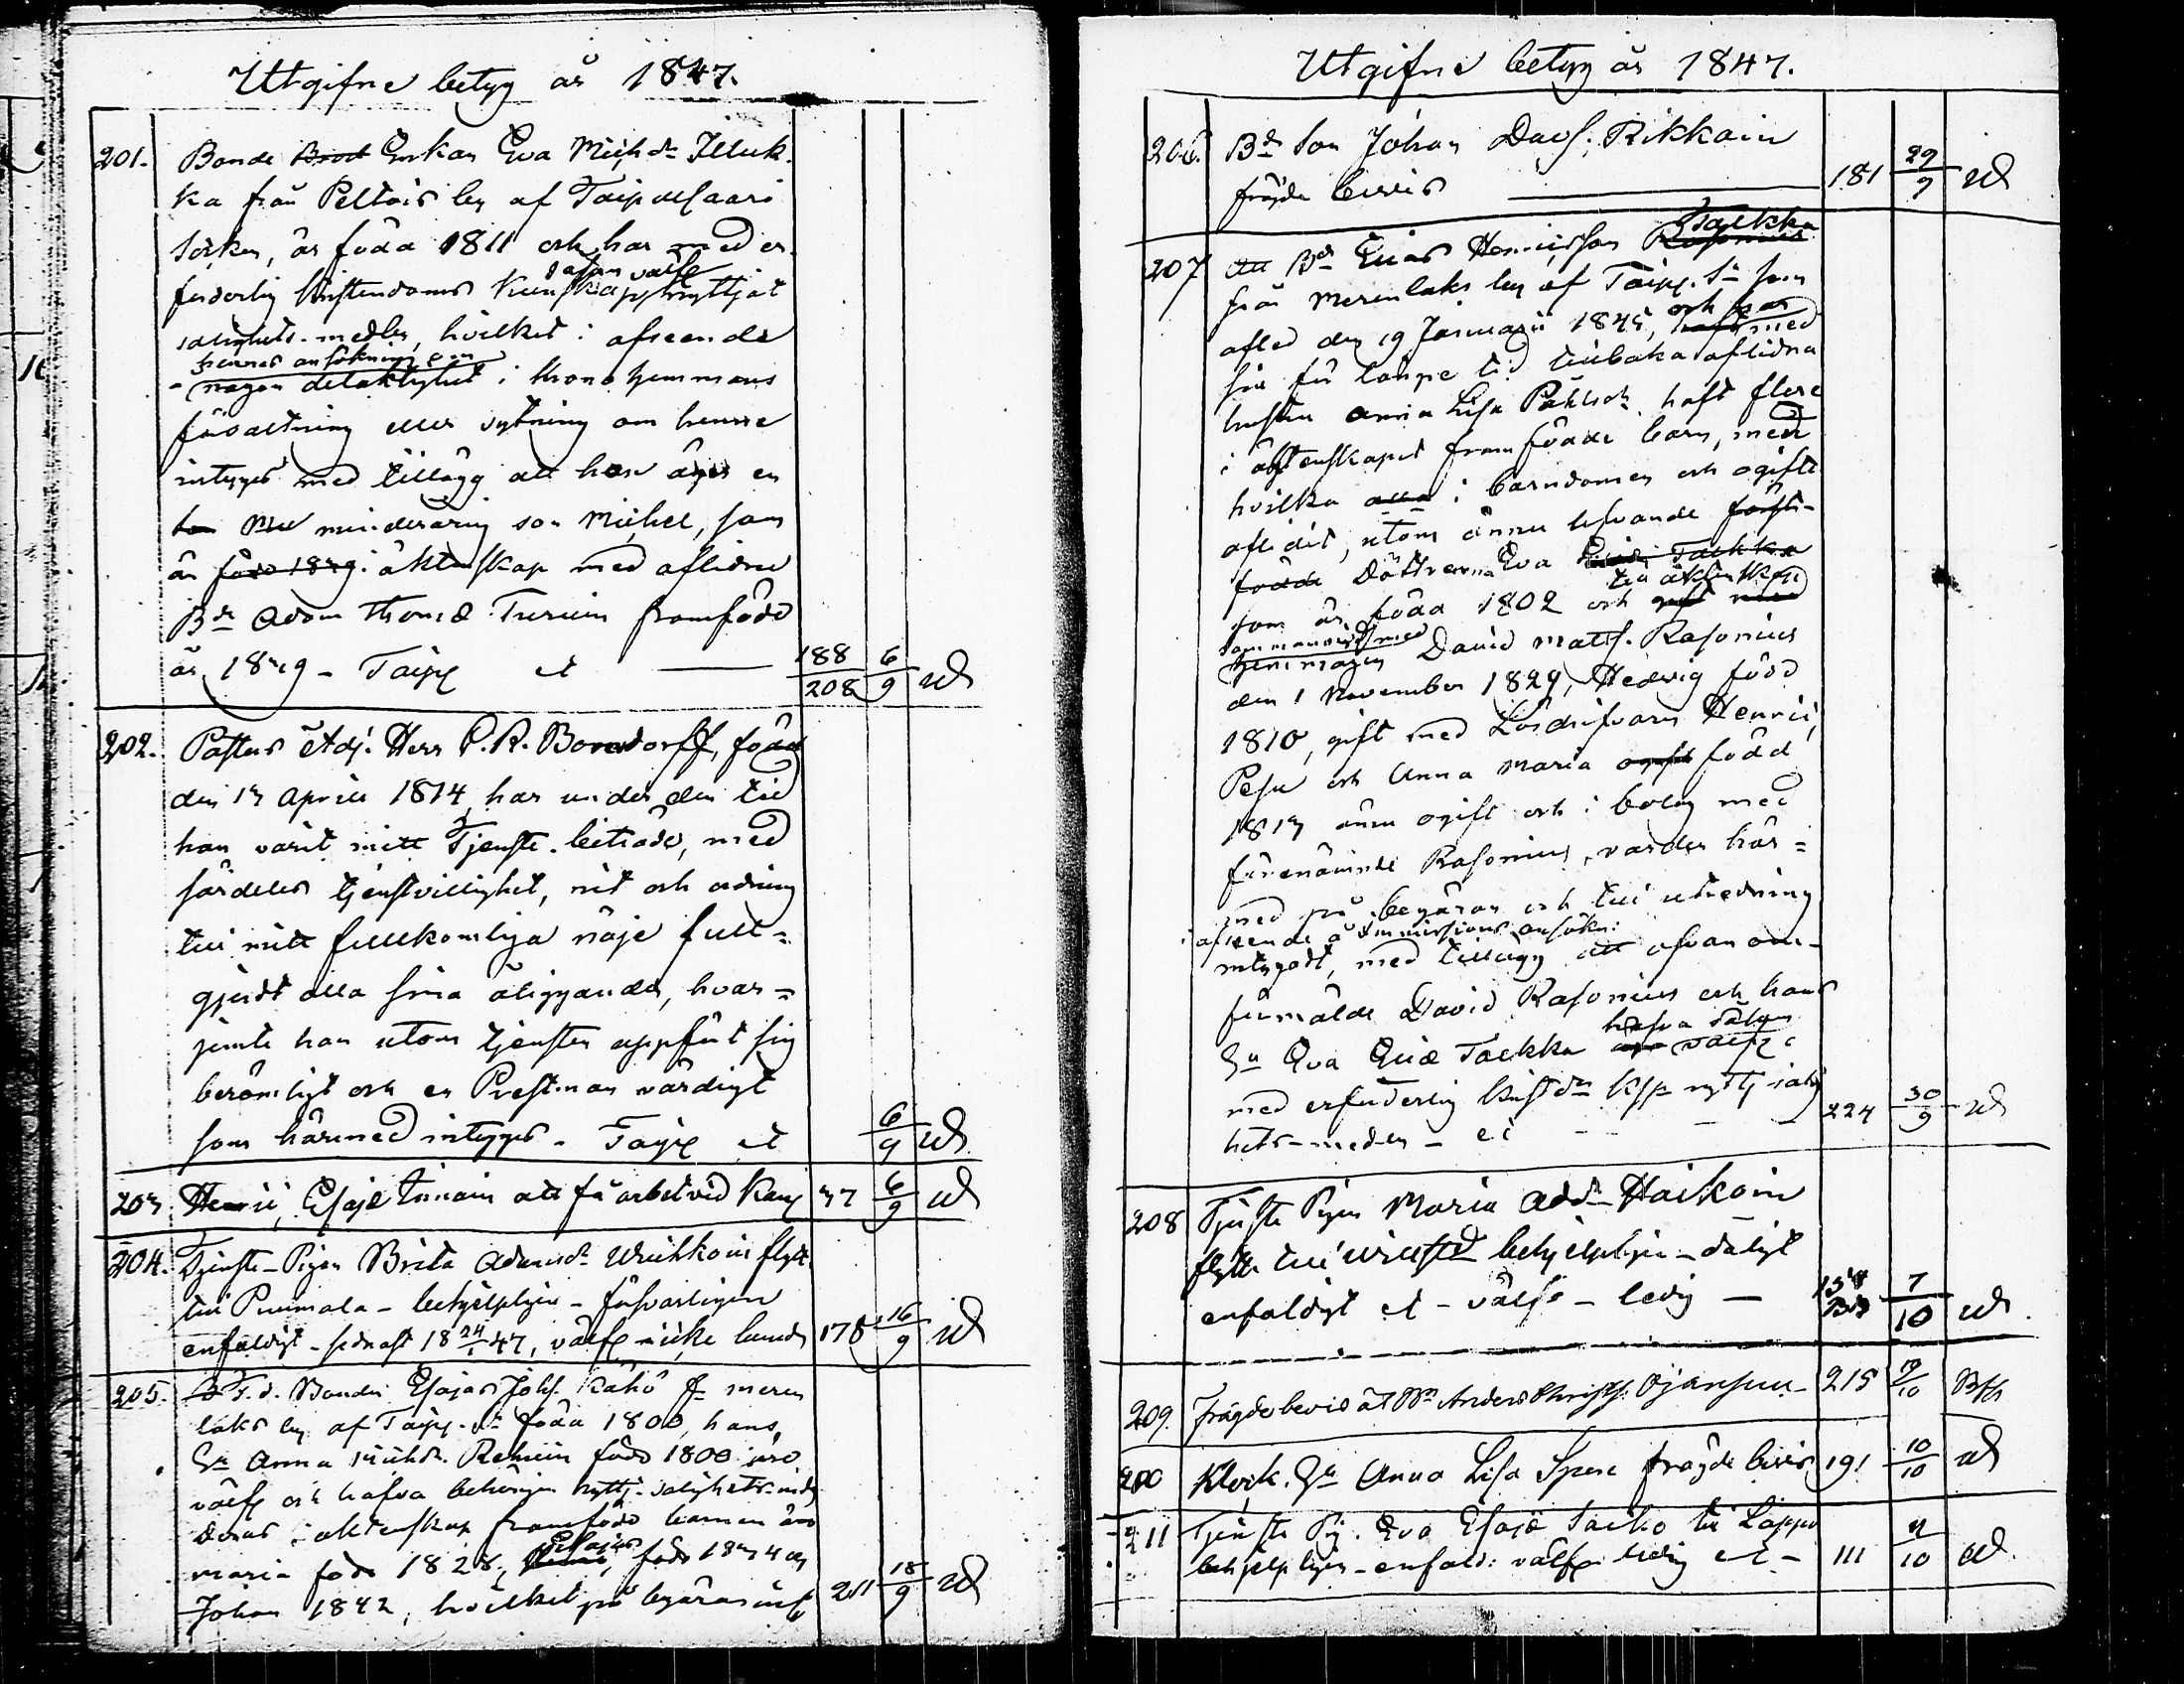 Utgifne betyg år 1847.
201. Bonde Enkan Eva Michsdr Illuk-
ka från Peltois by af Taipalsaari
Socken, är född 1811 och har med er-
forderlig Christendoms Kunskap nyttjat
sådan välfr
salighets-medlen, hvilket i afseende
hennes ansökning om
någon delaktighet i Kronohemmans
förvaltning eller sytning om henne
intygas med tillägg att hon äger en
minderårig son Michel, som
är född 1829 i äktenskap med aflidne
Bdn Adam Thomæ Turuin framfödd
år 1829 - Taipp et 188/208 6/9
202. Pastors Adj. Herr C. R. Borendorff, född
den 17 Aprill 1814 har under den tid
han varit mitt Tjenste-biträde, med
särdeles tjenstvillighet, nit och ordning
till mitt fullkomliga nöje full-
gjordt alla sina åligganden, hvar-
jemte han utom tjensten uppfört sig
berömligt och en Prestman värdigt
som härmed intygas - Taipp et 6/9
203. Henric Esajæ Innain att få arbet vid Kan 37 6/9
204. Tjenste-Pigan Brita Adamsdr Wuihkoin flytt.
till Puumala - behjelpligen - försvarligen
enfaldigt - sednast 18 24/1 47, välfr - icke bunden 178 16/9
205. F.d. Bonden Esajas Johs. Rähö fr Meren
laks by af Taipp. sn född 1800, hans
Hu Anna Michsdr. Rehuin född 1800 äro
välfr och hafva behörigen nyttj. salighets-med.
Deras i äktenskap framfödde barn äro
Maria född 1828, Esajas född 1834 och
Johan 1842, hvilket på begäran int. 211 18/9
Utgifne betyg år 1847.
206. Bde Son Johan Davs. Rikkoin
frägde bevis 181 29/9
207 Att Bdn Elias Henricsson Taekka
från Merenlaks by af Taipp. Sn som
afled den 19 Januarii 1845, och har med
sin för längre tid tillbaka aflidna
hustru Anna Lisa Påhlsdr haft flere
i äktenskapet framfödde barn, med
hvilka alla i barndomen och ogifte
aflidit, utom ännu lefvande
Döttrarna Eva Taekka
som är född 1802 och till äktenskap
sammanvigd med
David Matts. Rasonius
den 1 November 1829, Hedvig född
1810, gift med Lösdrifvaren Henric
Pesu och Anna Maria ogift född
1817 ännu ogift och i bolag med
förenämnde Rasonius, varder här-
med på begäran och till utredning
i afseende å immissions ansökn:
intygadt, med tillägg att ofvan om-
förmälde David Rasonius och hans
Hu Eva Eliæ Taekka hafva sådan välfr
med erforderlig Christdms Kssp nyttj. salig
hets-medlen - et 224 30/9
208 Tjenste Pigan Maria Adsdr Haikoin
flytta till behjelpligen - dåligt
enfaldigt et - välfr - ledig 7/10
209. Frägdebevis åt Bdn Anders Christfs. Ojansuu 215 9/10
210 Klock. Hu Anna Lisa Spore frägde bevis 191 10/10
211 Tjenste Pig. Eva Esajæ Saiko till Lappv
behjelpligen - enfald: välfr ledig et - 111 11/10